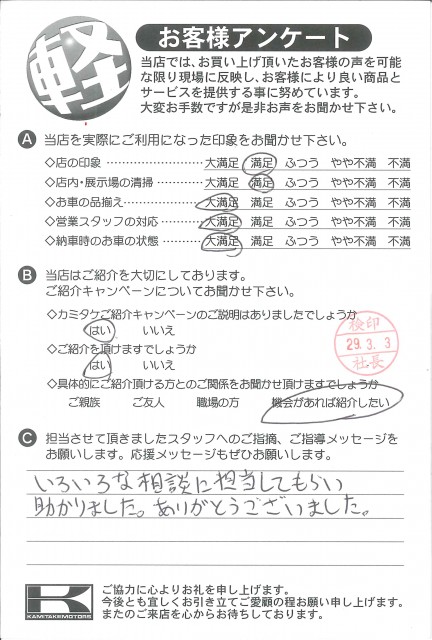 軽
お客様アンケート
当店では、お買い上げ頂いたお客様の声を可能
な限り現場に反映し、お客様により良い商品と
サービスを提供する事に努めています。
大変お手数ですが是非お声をお聞かせ下さい。
A 当店を実際にご利用になった印象をお聞かせ下さい。
◇店の印象 ………………………… 大満足 満足 ふつう やや不満 不満
◇店内・展示場の清掃 ………… 大満足 満足 ふつう やや不満 不満
◇お車の品揃え…………………… 大満足 満足 ふつう やや不満 不満
◇営業スタッフの対応 ………… 大満足 満足 ふつう やや不満 不満
◇納車時のお車の状態 ………… 大満足 満足 ふつう やや不満 不満
B 当店はご紹介を大切にしております。
ご紹介キャンペーンについてお聞かせ下さい。
◇カミタケご紹介キャンペーンのご説明はありましたでしょうか
はい いいえ
◇ご紹介を頂けますでしょうか
はい いいえ
◇具体的にご紹介頂ける方とのご関係をお聞かせ頂けますでしょうか
ご親族 ご友人 職場の方 機会があれば紹介したい
検印
29.3.3
社長
C 担当させて頂きましたスタッフへのご指摘、ご指導メッセージを
お願いします。応援メッセージもぜひお願いします。
いろいろな相談に担当してもらい
助かりました。ありがとうございました。
K
KAMITAKEMOTORS
ご協力に心よりお礼を申し上げます。
今後とも宜しくお引き立てご愛顧の程お願い申し上げます。
またのご来店を心からお待ちしております。